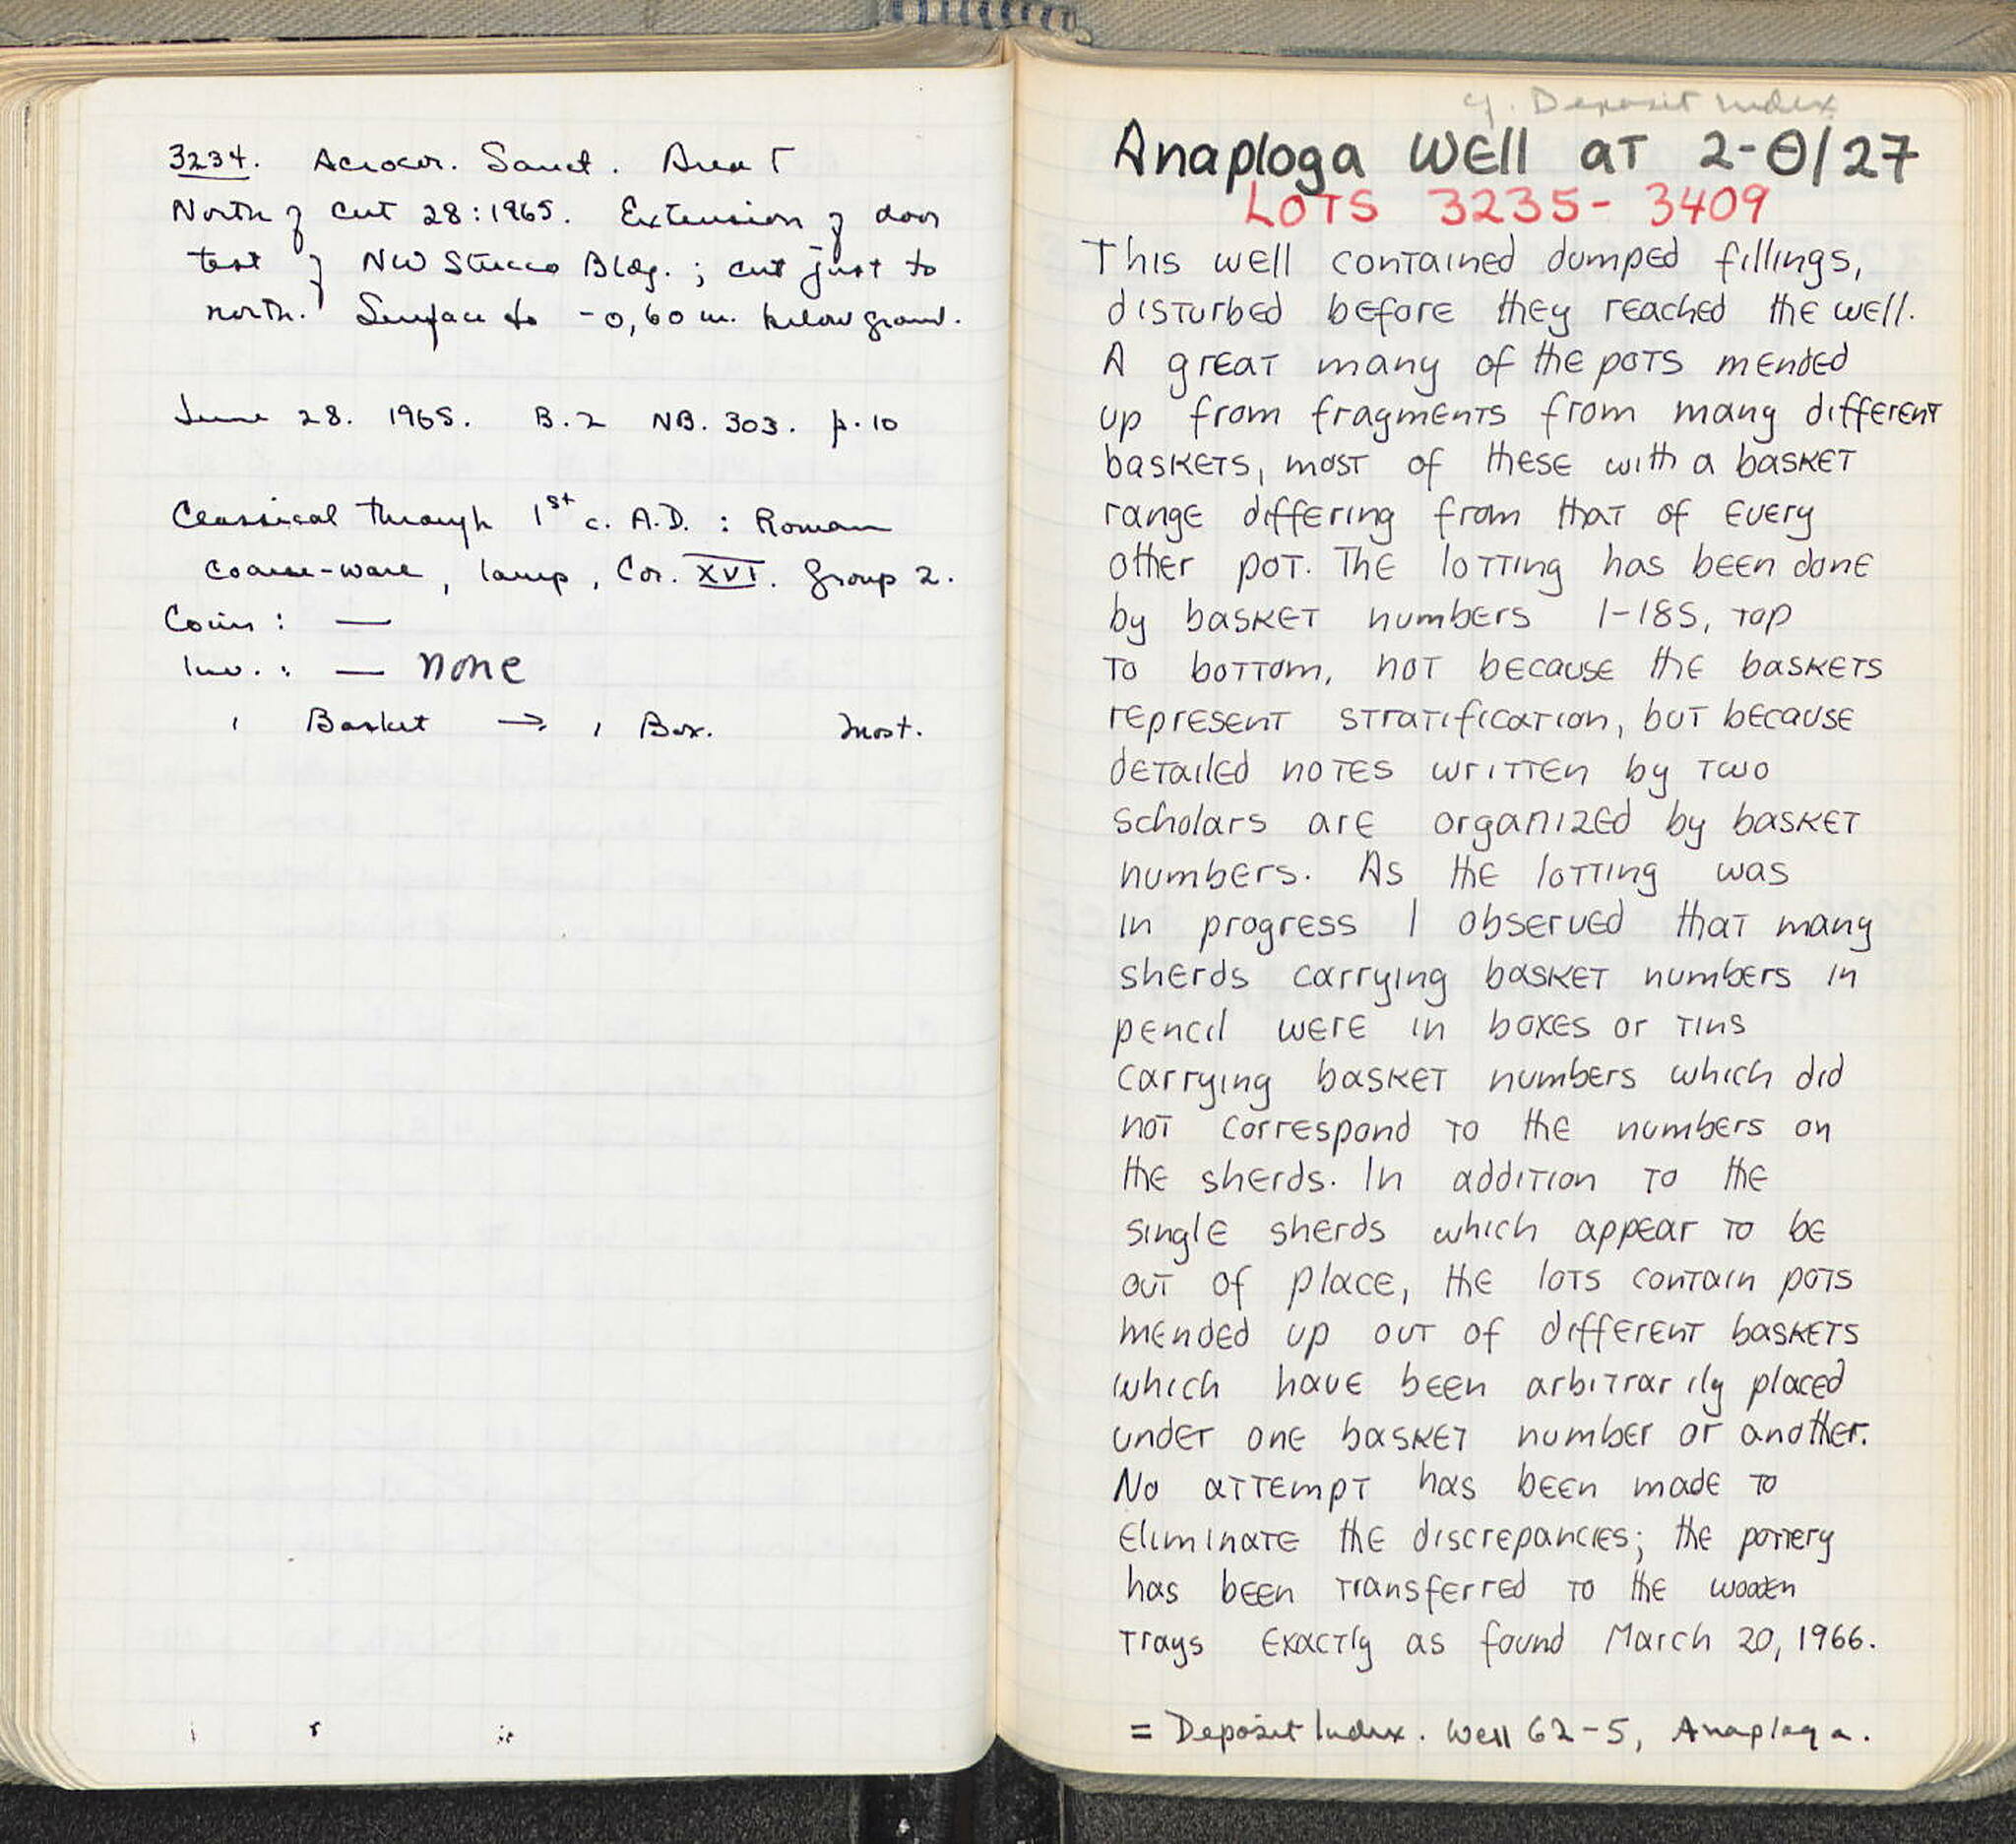 3234. Acrocor. Sanct. Area Γ
North of cut 28:1965. Extension of door
test of NW Stucco Bldg.; cut just to
north. Surface to -0,60 m. below ground.
June 28. 1965. B.2 NB. 303. p.10
Classical through 1st c. A.D. : Roman
coarse-ware, lamp, Cor. XVI. Group 2.
Coins: —
Inv.: — none
1 Basket → 1 Box. Most.
cf. Deposit Index
Anaploga Well at 2-Θ/27
LOTS 3235-3409
This well contained dumped fillings,
disturbed before they reached the well.
A great many of the pots mended
up from fragments from many different
baskets, most of these with a basket
range differing from that of every
other pot. The lotting has been done
by basket numbers 1-185, top
to bottom, not because the baskets
represent stratification, but because
detailed notes written by two
scholars are organized by basket
numbers. As the lotting was
in progress I observed that many
sherds carrying basket numbers in
pencil were in boxes or tins
carrying basket numbers which did
not correspond to the numbers on
the sherds. In addition to the
single sherds which appear to be
out of place, the lots contain pots
mended up out of different baskets
which have been arbitrarily placed
under one basket number or another.
No attempt has been made to
eliminate the discrepancies; the pottery
has been transferred to the wooden
trays exactly as found March 20, 1966.
= Deposit Index. Well 62-5, Anaploga.